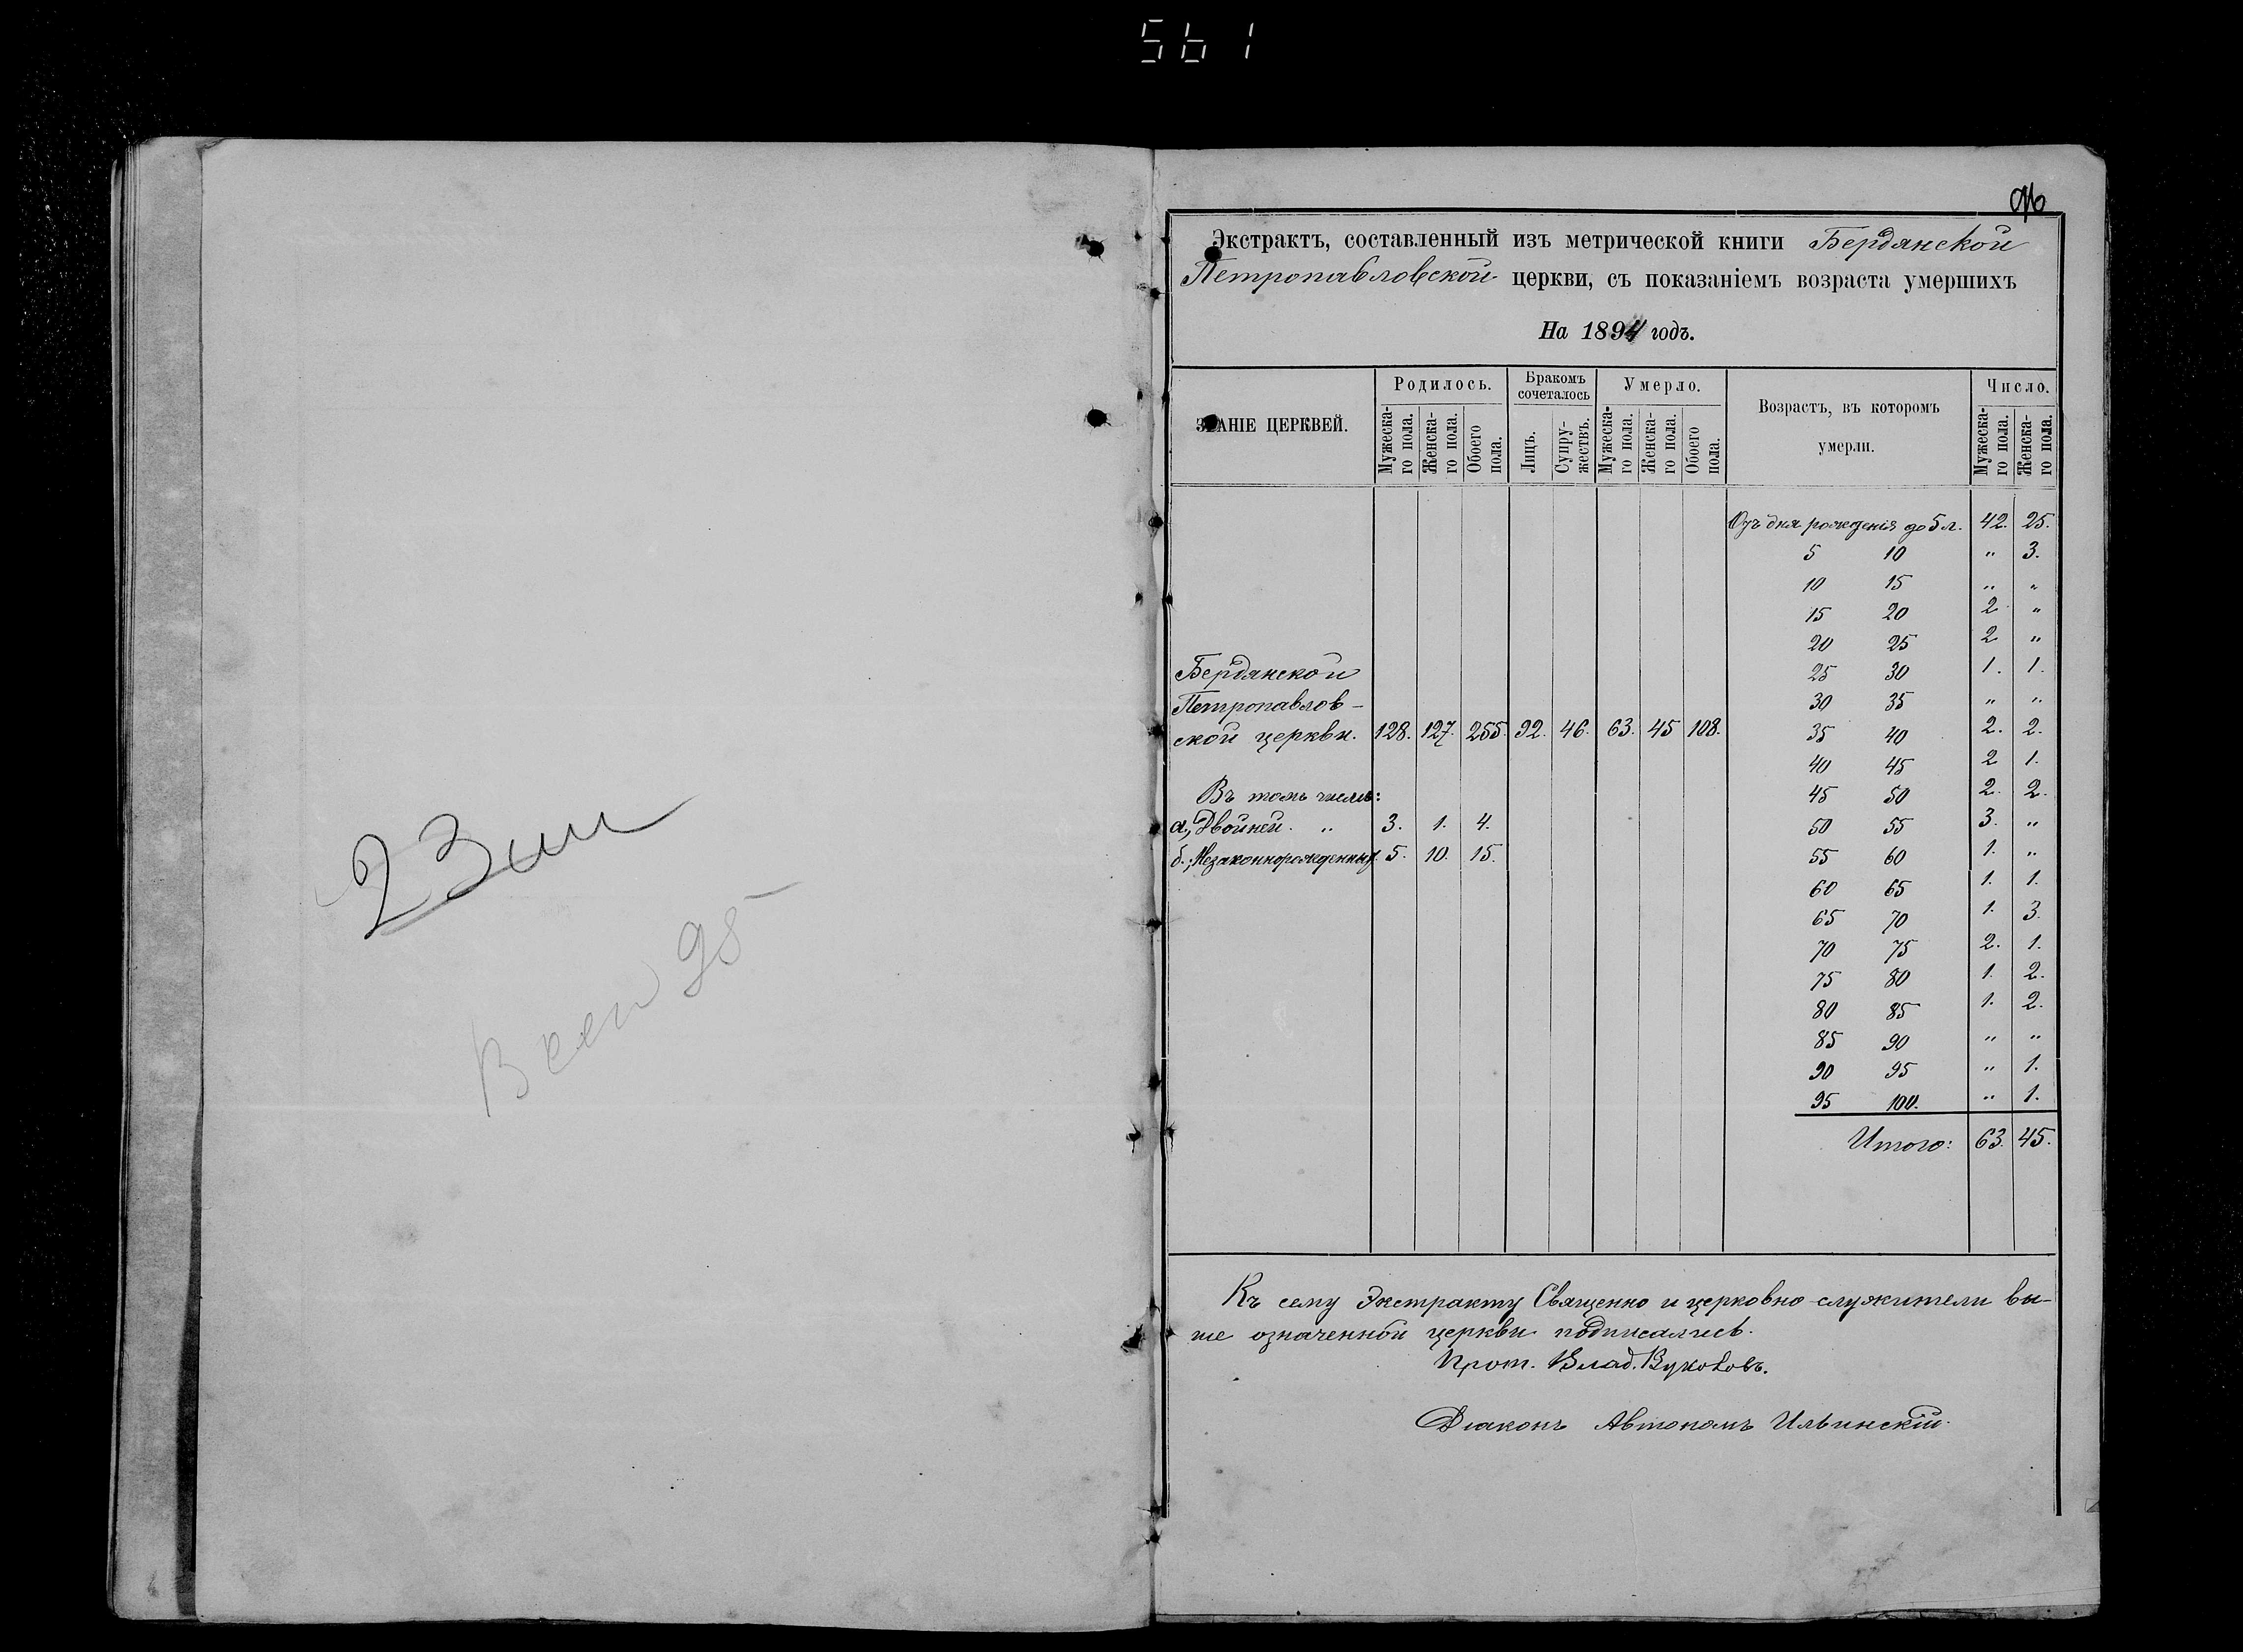 561
96
Экстрактъ, составленный изъ метрической книги Бердянской
Петропавловской церкви, съ показаніемъ возраста умершихъ
На 1894 годъ.
ЗВАНІЕ ЦЕРКВЕЙ.
Родилось.
Бракомъ сочеталось
Умерло.
Возрастъ, въ которомъ умерли.
Число.
Мужеска-го пола.
Женска-го пола.
Обоего пола.
Лицъ.
Супру-жествъ.
Мужеска-го пола.
Женска-го пола.
Обоего пола.
Мужеска-го пола.
Женска-го пола.
Отъ дня рожденія до 5 л. 42. 25.
5 10 " 3.
10 15 " "
15 20 2. "
20 25 2 "
25 30 1. 1.
30 35 " "
35 40 2. 2.
40 45 2 1.
45 50 2. 2.
50 55 3. "
55 60 1. "
60 65 1. 1.
65 70 1. 3.
70 75 2. 1.
75 80 1. 2.
80 85 1. 2.
85 90 " "
90 95 " 1.
95 100. " 1.
Итого: 63. 45.
Бердянской
Петропавлов-
ской церкви. 128. 127. 255. 92. 46. 63. 45 108.
Въ томъ числѣ:
а., Двойней. " 3. 1. 4.
б., Незаконнорожденных 5. 10. 15.
23
95
Къ сему Экстракту Священно и церковно-служители вы-
ше означенной церкви подписались.
Прот. Влад. Вуколовъ.
Діаконъ Автономъ Ильинскій.